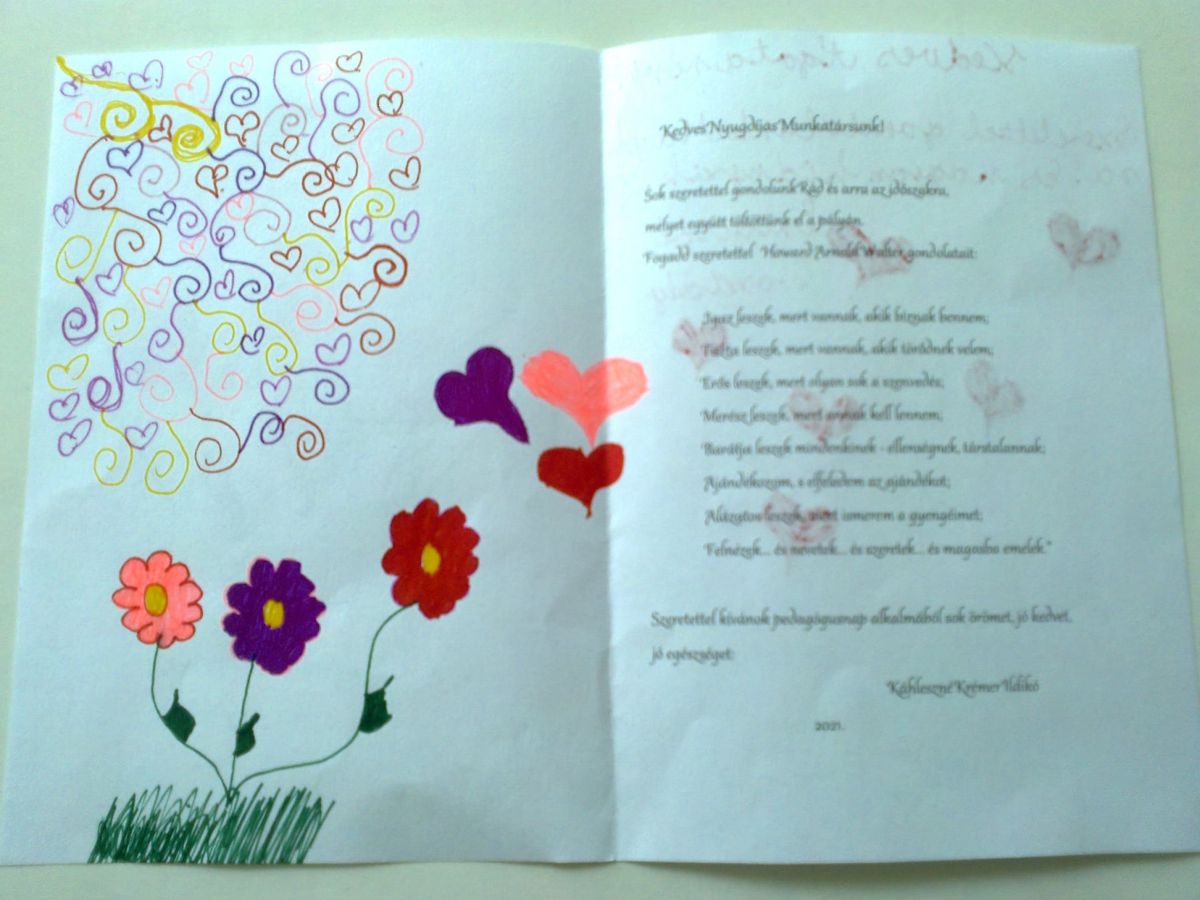 Kedves Nyugdíjas Munkatársunk!
Sok szeretettel gondolunk Rád és arra az időszakra,
melyet együtt töltöttünk el a pályán.
Fogadd szeretettel Howard Arnold Walter gondolatait:
"Igaz leszek, mert vannak, akik bíznak bennem;
Tiszta leszek, mert vannak, akik törődnek velem;
Erős leszek, mert olyan sok a szenvedés;
Merész leszek, mert annak kell lennem;
Barátja leszek mindenkinek - ellenségnek, társtalannak;
Ajándékozom, s elfeledem az ajándékot;
Alázatos leszek, mert ismerem a gyengéimet;
Felnézek... és nevetek... és szeretek... és magasba emelek."
Szeretettel kívánok pedagógusnap alkalmából sok örömet, jó kedvet,
jó egészséget:
Káhleszné Krémer Ildikó
2021.